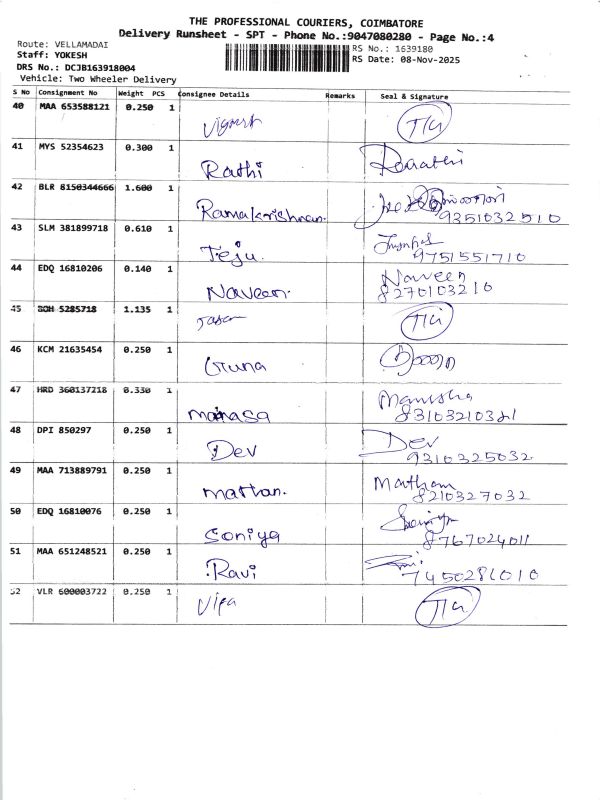 THE PROFESSIONAL COURIERS, COIMBATORE
Delivery Runsheet - SPT - Phone No.:9047080280 - Page No.:4
Route: VELLAMADAI
RS No.: 1639180
Staff: YOKESH
RS Date: 08-Nov-2025
DRS No.: DCJB163918004
Vehicle: Two Wheeler Delivery
S No Consignment No Weight PCS Consignee Details Remarks Seal & Signature
40 MAA 653588121 0.250 1
41 MYS 52354623 0.300 1
Rathi
42 BLR 8150344666 1.600 1
Ramakrishnan. 9351032510
43 SLM 381899718 0.610 1
Teju. 9751551710
44 EDQ 16810206 0.140 1
Naveen. Naveen
8270103210
45 5285718 1.135 1
46 KCM 21635454 0.250 1
Guna
47 HRD 360137218 0.330 1
manasa Manisha
83103210321
48 DPI 850297 0.250 1
Dev Dev
9310325032
49 MAA 713889791 0.250 1
mathan. Matham
8210327032
50 EDQ 16810076 0.250 1
Soniya 8767024011
51 MAA 651248521 0.250 1
Ravi 7450281010
52 VLR 600003722 0.250 1